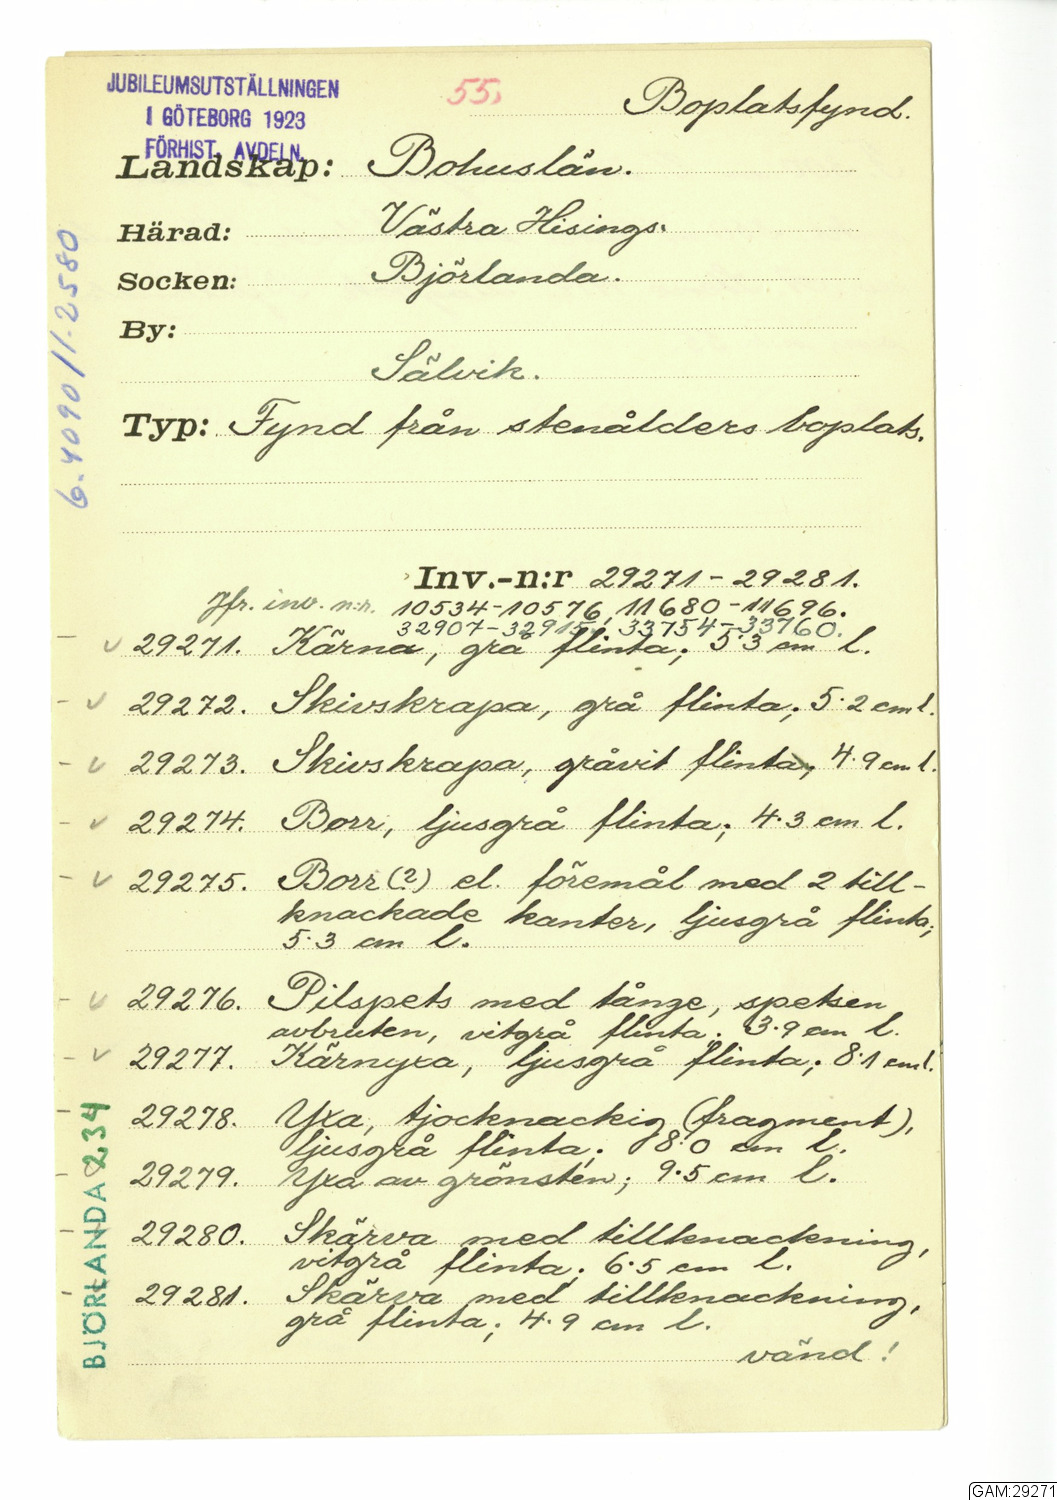 JUBILEUMSUTSTÄLLNINGEN
I GÖTEBORG 1923
FÖRHIST. AVDELN.
55,
Boplatsfynd.
Landskap: Bohuslän.
Härad: Västra Hisings.
Socken: Björlanda.
By:
Sälvik.
Typ: Fynd från stenålders boplats.
Inv.-n:r 29271-29281.
Jfr. inv. n:r. 10534-10576, 11680-11696.
32907-32915. 33754-33760.
29271. Kärna, grå flinta; 5.3 cm l.
29272. Skivskrapa, grå flinta; 5.2 cm l.
29273. Skivskrapa, gråvit flinta; 4.9 cm l.
29274. Borr, ljusgrå flinta; 4.3 cm l.
29275. Borr(?) el. föremål med 2 till-
knackade kanter, ljusgrå flinta;
5.3 cm l.
29276. Pilspets med tånge, spetsen
avbruten, vitgrå flinta; 3.9 cm l.
29277. Kärnyxa, ljusgrå flinta; 8.1 cm l.
29278. Yxa, tjocknackig (fragment),
ljusgrå flinta; 8.0 cm l.
29279. Yxa av grönsten; 9.5 cm l.
29280. Skärva med tillknackning,
vitgrå flinta; 6.5 cm l.
29281. Skärva med tillknackning,
grå flinta; 4.9 cm l.
vänd!
6.4090/1.2580
BJÖRLANDA 234
GAM:29271